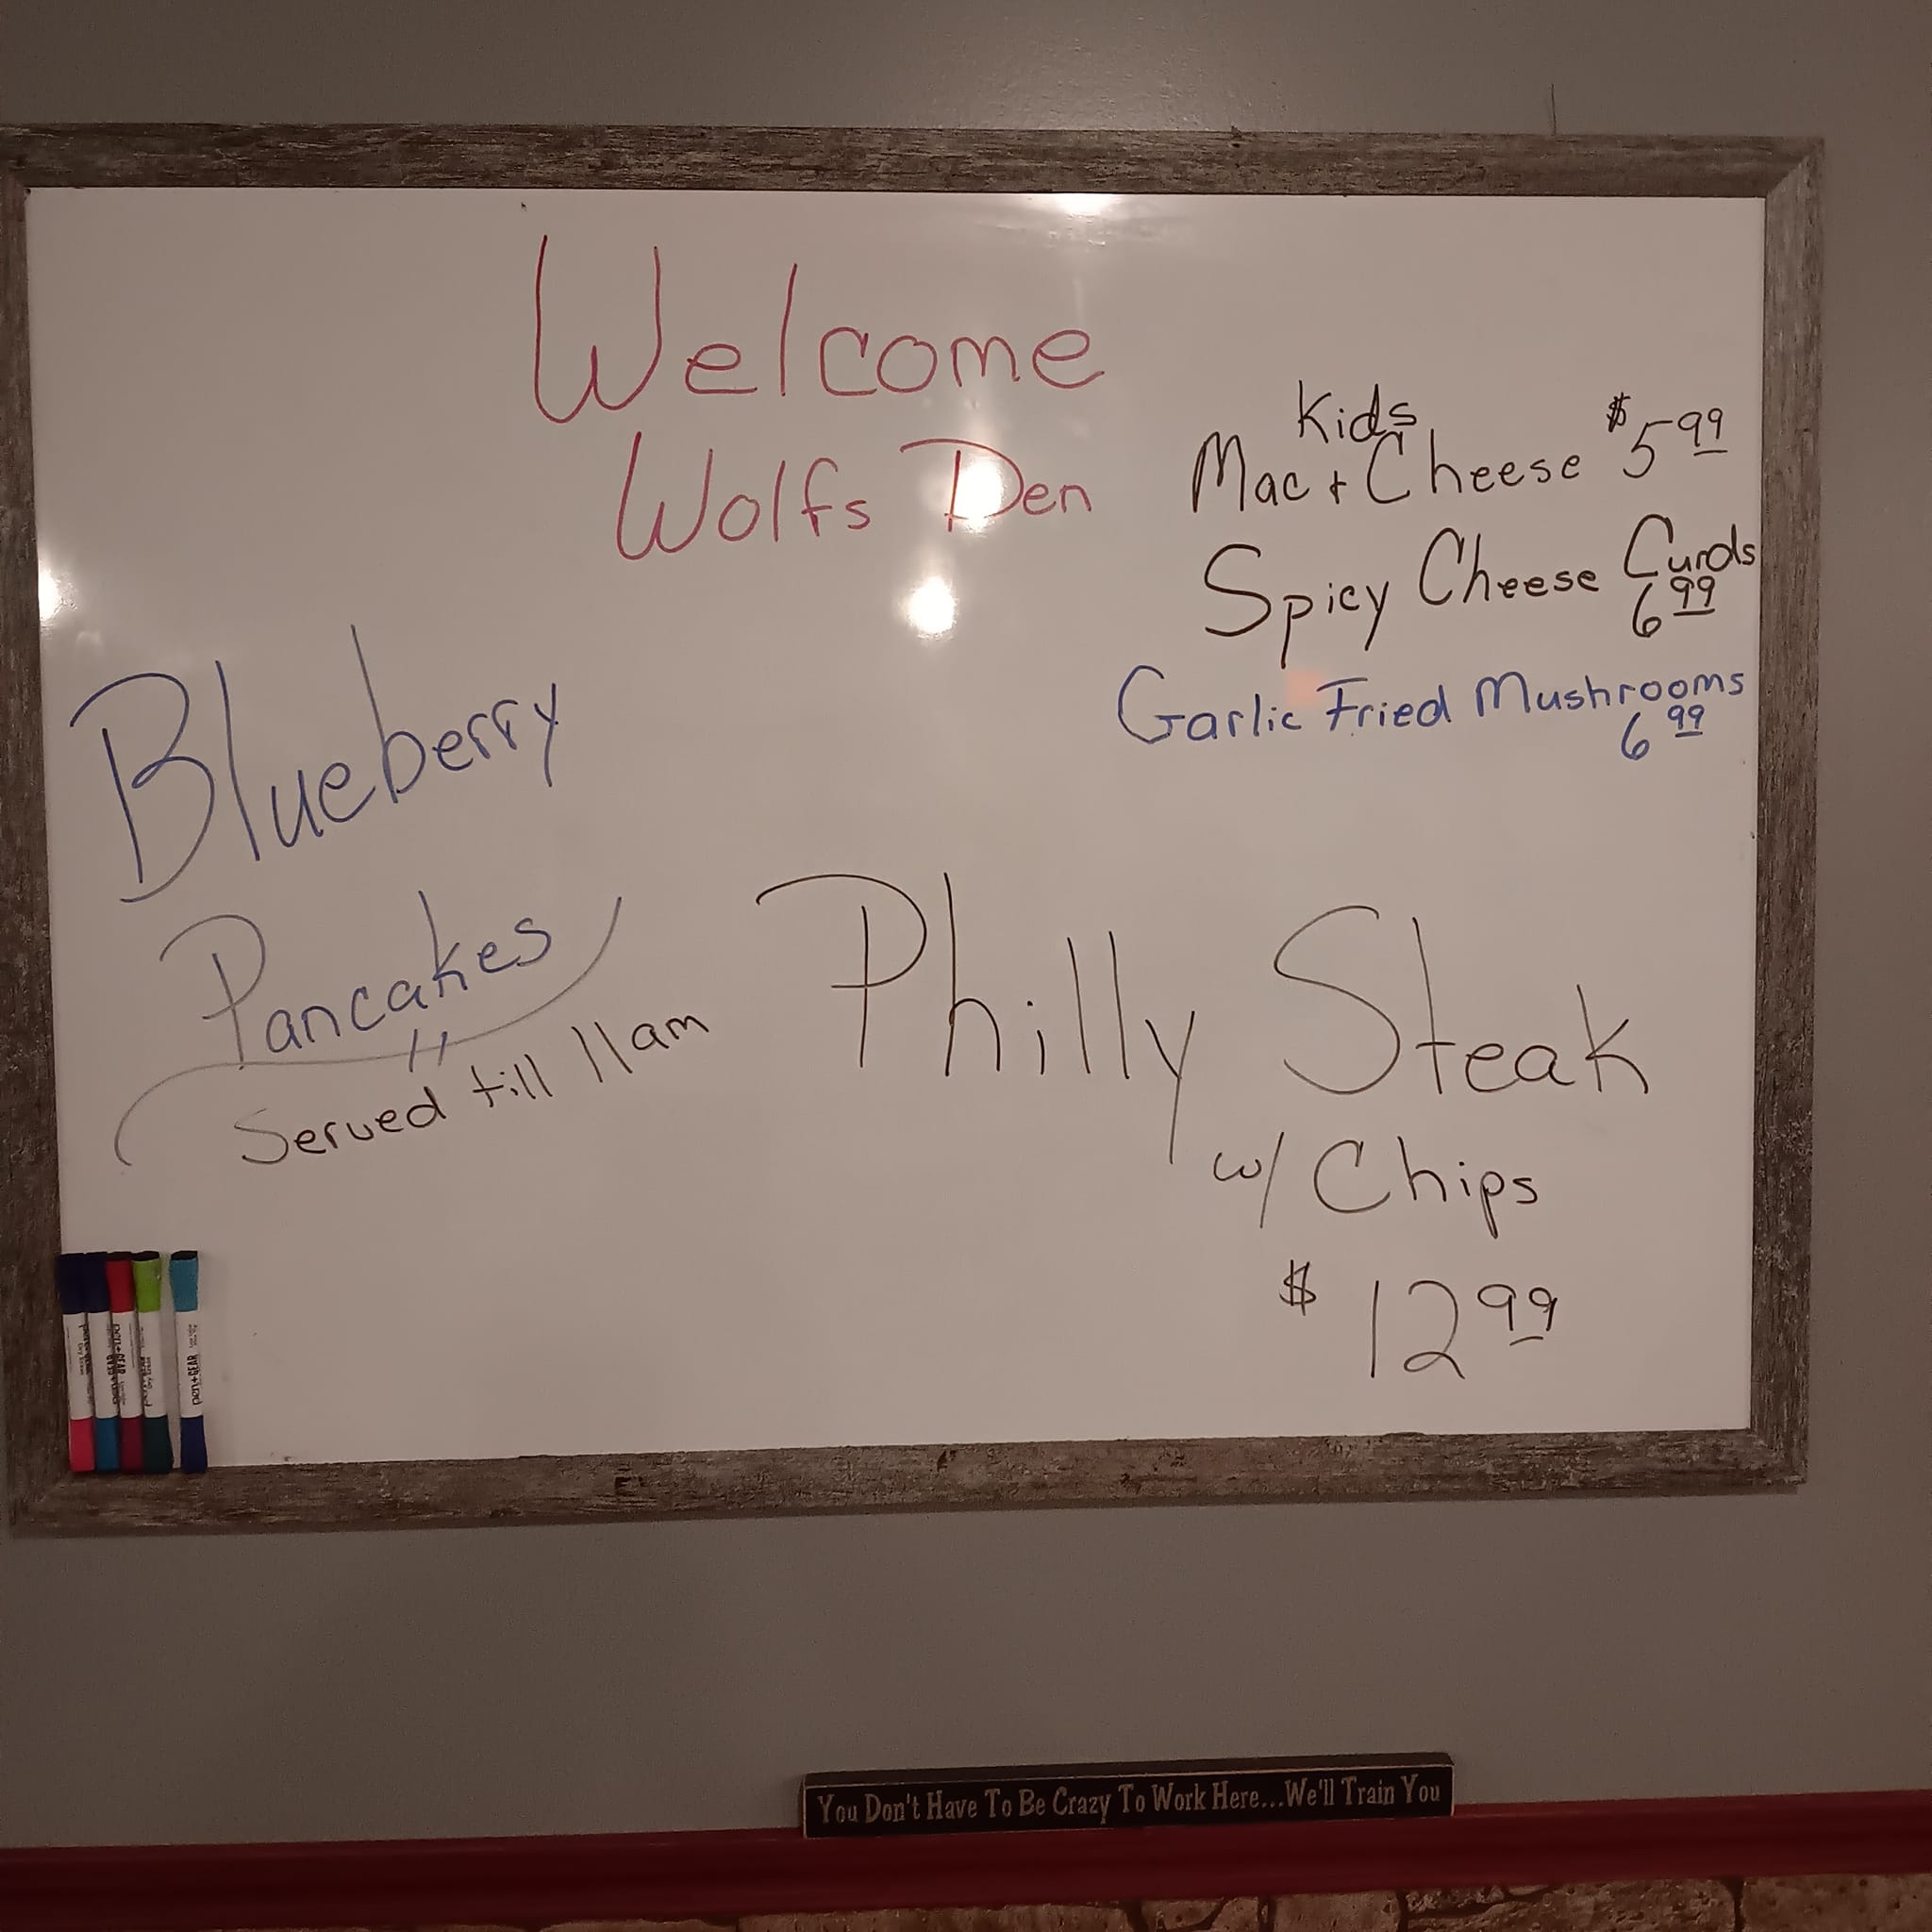 Welcome
Wolfs Den
Kids
Mac + Cheese $5 99
Spicy Cheese Curds
6 99
Garlic Fried Mushrooms
6 99
Blueberry
Pancakes
Served till 11am
Philly Steak
w/ Chips
$ 12 99
pen+GEAR
pen+GEAR
You Don't Have To Be Crazy To Work Here...We'll Train You